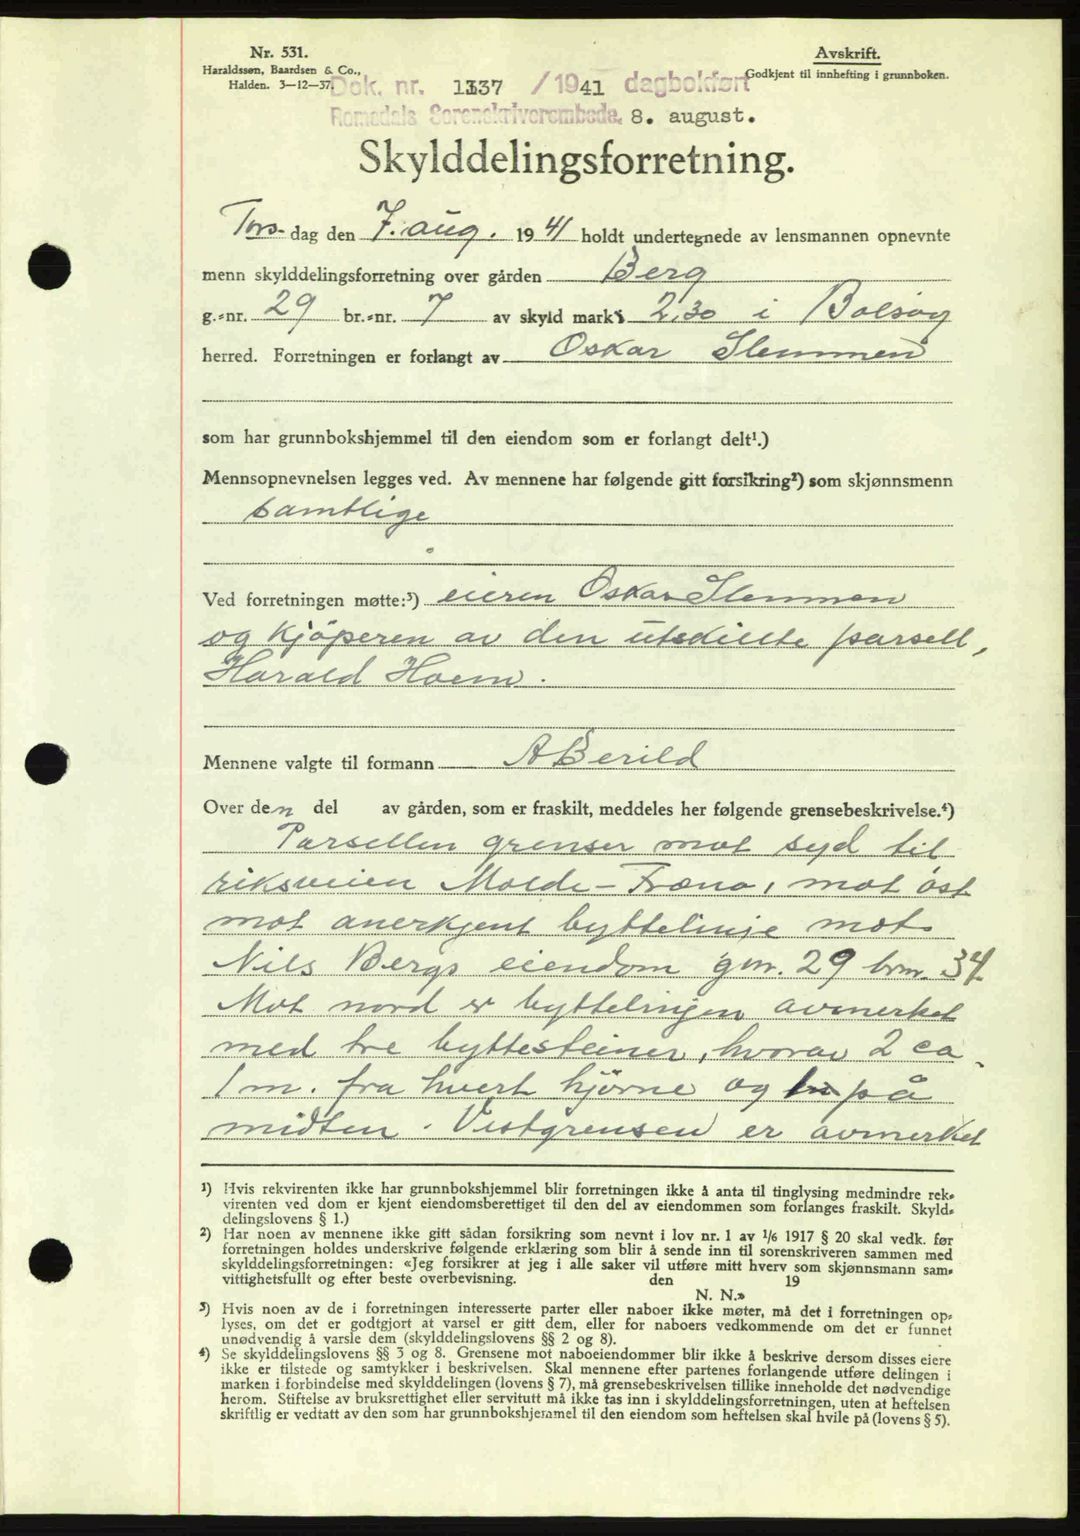 Nr. 531.
Haraldssøn, Baardsen & Co.,
Halden. 3—12—37.
Avskrift.
Godkjent til innhefting i grunnboken.
Dok. nr. 1337 / 1941 dagbokført
Romsdals Sorenskriverembede. 8. august.
Skylddelingsforretning.
Tors- dag den 7. aug. 1941 holdt undertegnede av lensmannen opnevnte
menn skylddelingsforretning over gården Berg
g.-nr. 29 br.-nr. 7 av skyld mark 2,30 i Bolsøy
herred. Forretningen er forlangt av Oskar Slemmen
som har grunnbokshjemmel til den eiendom som er forlangt delt¹.)
Mennsopnevnelsen legges ved. Av mennene har følgende gitt forsikring²) som skjønnsmenn
samtlige
Ved forretningen møtte:³) eieren Oskar Slemmen
og kjøperen av den utskillte parsell,
Harald Hoem.
Mennene valgte til formann A Berild
Over den del av gården, som er fraskilt, meddeles her følgende grensebeskrivelse.⁴)
Parsellen grenser mot syd til
riksveien Molde – Fræna, mot öst
mot anerkjent byttelinje mot
Nils Bergs eiendom gnr. 29 brnr. 34
Mot nord er byttelinjen avmerket
med tre byttesteiner, hvorav 2 ca
1 m. fra hvert hjörne og på
midten. Vestgrensen er avmerket
¹) Hvis rekvirenten ikke har grunnbokshjemmel blir forretningen ikke å anta til tinglysing medmindre rek-
virenten ved dom er kjent eiendomsberettiget til den del av eiendommen som forlanges fraskilt. Skyld-
delingslovens § 1.)
²) Har noen av mennene ikke gitt sådan forsikring som nevnt i lov nr. 1 av 1/6 1917 § 20 skal vedk. før
forretningen holdes underskrive følgende erklæring som blir å sende inn til sorenskriveren sammen med
skylddelingsforretningen: «Jeg forsikrer at jeg i alle saker vil utføre mitt hverv som skjønnsmann sam-
vittighetsfullt og efter beste overbevisning. den 19
N. N.»
³) Hvis noen av de i forretningen interesserte parter eller naboer ikke møter, må det i forretningen op-
lyses, om det er godtgjort at varsel er gitt dem, eller for naboers vedkommende om det er funnet
unødvendig å varsle dem (skylddelingslovens §§ 2 og 8).
⁴) Se skylddelingslovens §§ 3 og 8. Grensene mot naboeiendommer blir ikke å beskrive dersom disses eiere
ikke er tilstede og samtykker i beskrivelsen. Skal mennene efter partenes forlangende utføre delingen i
marken i forbindelse med skylddelingen (lovens § 7), må grensebeskrivelsen tillike inneholde det nødvendige
herom. Stiftelse av bruksrettighet eller servitutt må ikke tas inn i skylddelingsforretningen, uten at heftelsen
skriftlig er vedtatt av den som har grunnbokshjemmel til den eiendom som heftelsen skal hvile på (lovens § 5).